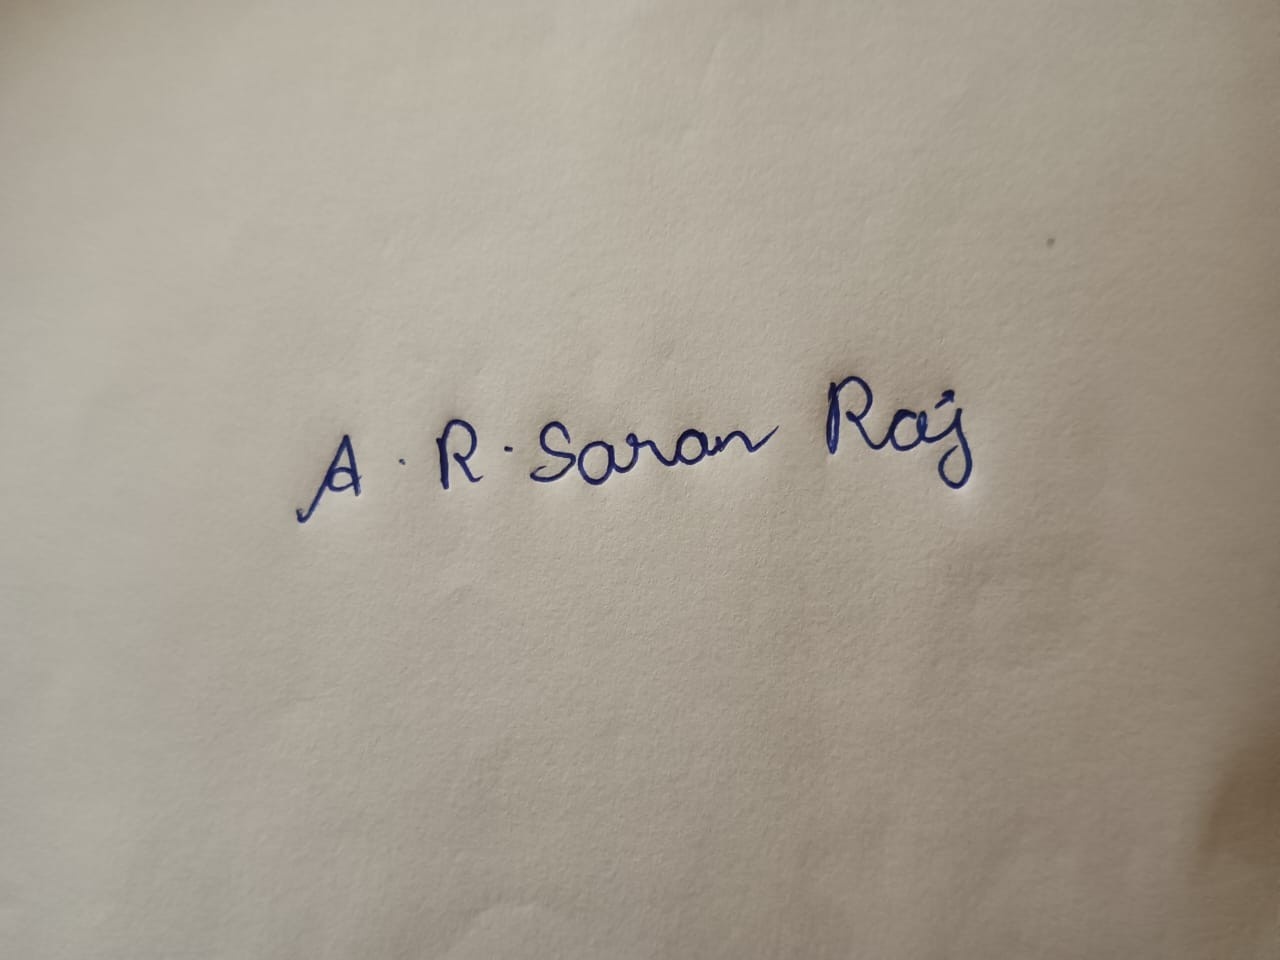 A. R. Saran Raj